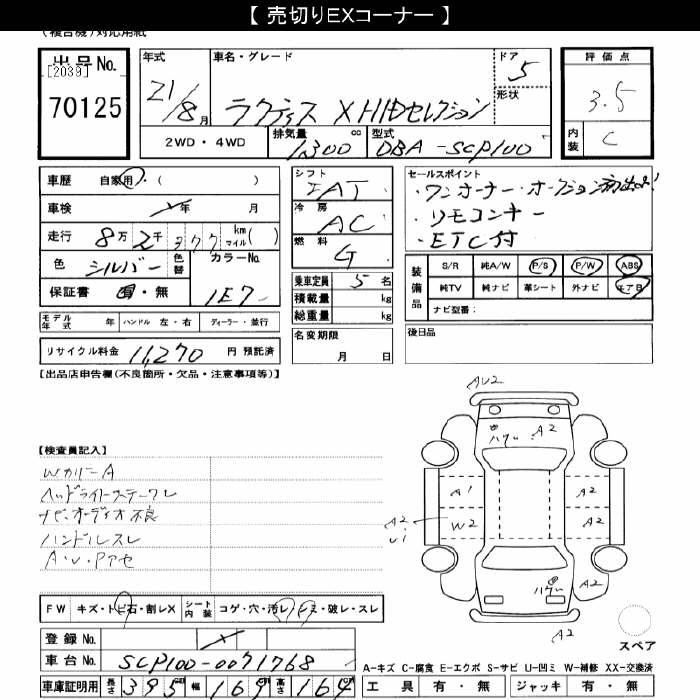 【 売切りEXコーナー 】
(複合機)対応用紙
出品No.
[2039]
70125
年式
21/8月
車名・グレード
ラクティス X HIDセレクション
ドア
5
形状
評価点
3.5
内装
C
2WD・4WD
排気量
1,300 cc
型式
DBA-SCP100
車歴 自家用・( )
車検 年 月
走行 8万2千377 km マイル( )
色 シルバー 色替 カラーNo.
1E7
保証書 有・無
モデル年式 年 ハンドル 左・右 ディーラー・並行
リサイクル料金 11,270 円 預託済
シフト
FAT
冷房
AC
燃料
G
乗車定員 5 名
積載量 kg
総重量 kg
名変期限
月 日
セールスポイント
・ワンオーナー・オークション初出品!
・リモコンキー
・ETC付
装備品
S/R 純A/W P/S P/W ABS
純TV 純ナビ 革シート 外ナビ エアB
ナビ型番:
後日品
【出品店申告欄(不良箇所・欠品・注意事項等)】
【検査員記入】
WカリーA
ヘッドライトステークレ
ナビ・オーディオ不良
ハンドルスレ
A・U・Pアセ
AU2
ハゲ A2
A1
W2
A2
U1
A2
A2
A2
ハゲ
A2
スペア
FW キズ・トビ石・割レX
シート内装 コゲ・穴・汚レ・シミ・破レ・スレ
登録No.
車台No. SCP100-0071768
車庫証明用 長さ 395 幅 169 高さ 164
A-キズ C-腐食 E-エクボ S-サビ U-凹ミ W-補修 XX-交換済
工具 有・無 ジャッキ 有・無